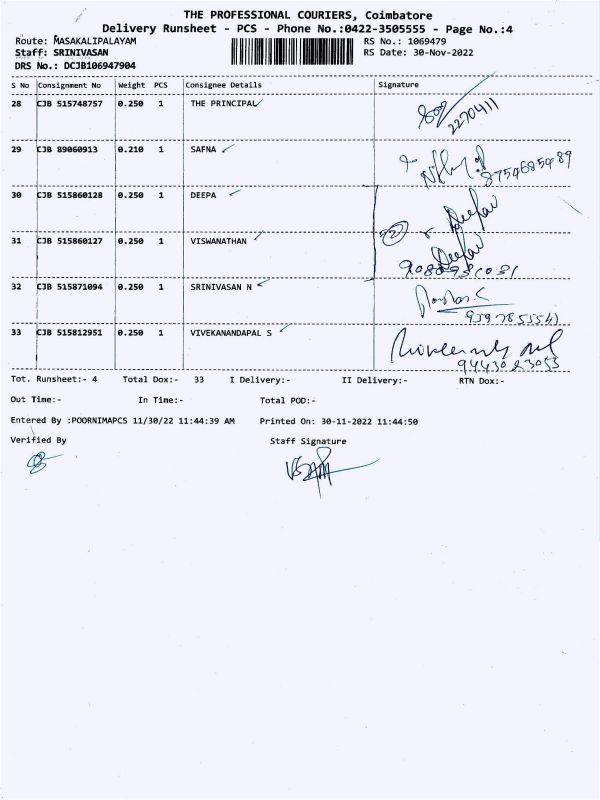 THE PROFESSIONAL COURIERS, Coimbatore
Delivery Runsheet - PCS - Phone No.:0422-3505555 - Page No.:4
Route: MASAKALIPALAYAM RS No.: 1069479
Staff: SRINIVASAN RS Date: 30-Nov-2022
DRS No.: DCJB106947904
S No Consignment No Weight PCS Consignee Details Signature
28 CJB 515748757 0.250 1 THE PRINCIPAL
2270411
29 CJB 89060913 0.210 1 SAFNA
8754685489
30 CJB 515860128 0.250 1 DEEPA
31 CJB 515860127 0.250 1 VISWANATHAN
32 CJB 515871094 0.250 1 SRINIVASAN N
33 CJB 515812951 0.250 1 VIVEKANANDAPAL S
Tot. Runsheet:- 4 Total Dox:- 33 I Delivery:- II Delivery:- RTN Dox:-
Out Time:- In Time:- Total POD:-
Entered By :POORNIMAPCS 11/30/22 11:44:39 AM Printed On: 30-11-2022 11:44:50
Verified By Staff Signature